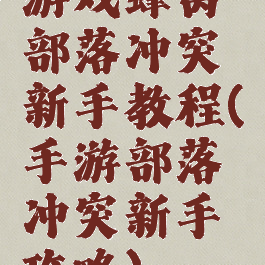 游戏蜂窝
部落冲突
新手教程(
手游部落
冲突新手
攻略)